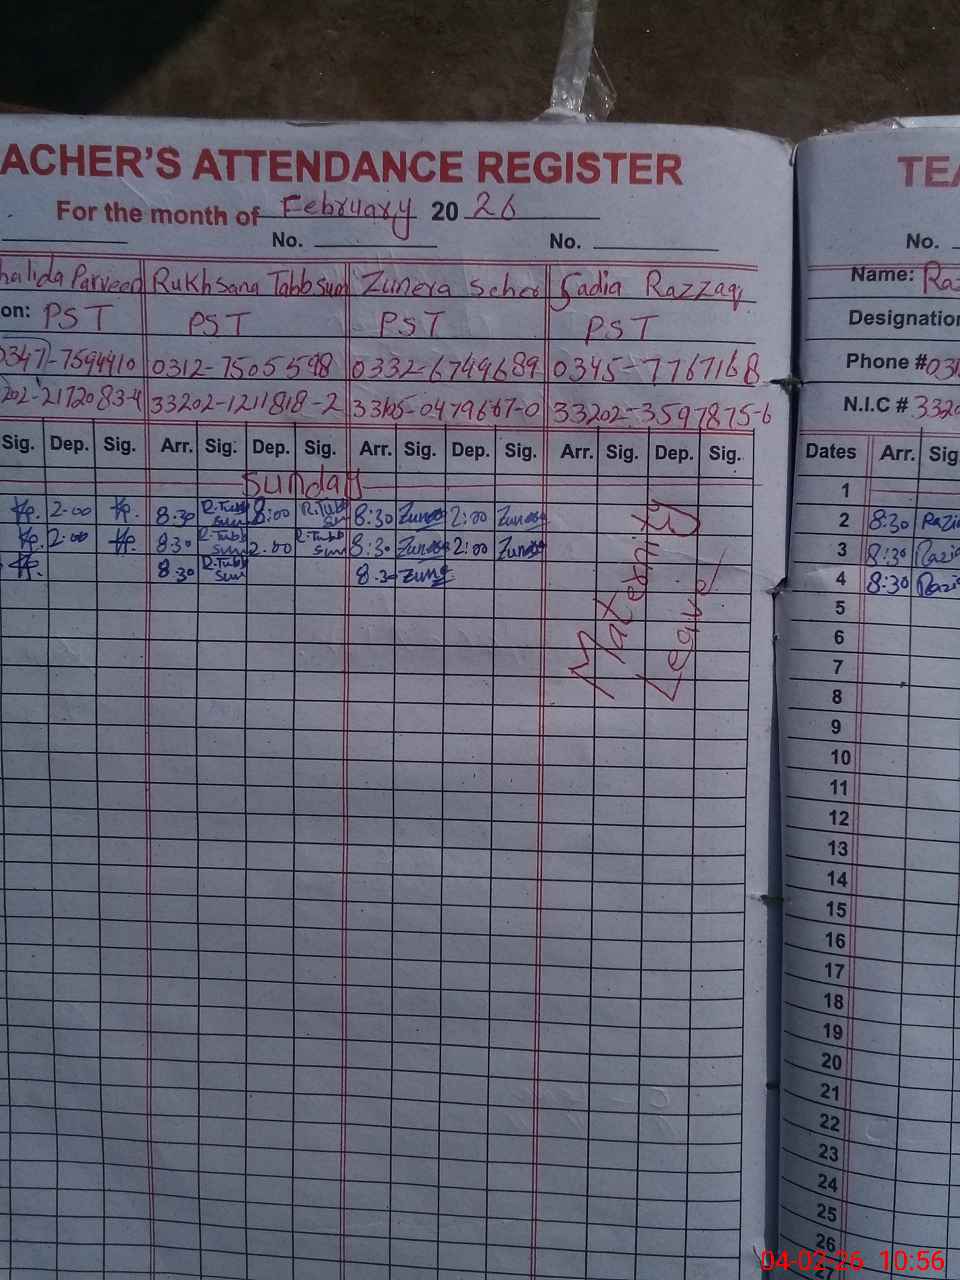 ACHER'S ATTENDANCE REGISTER
For the month of February 20 26
No. No.
halida Parveen Rukhsana Tabbsum Zunera Sadia Razzaq
on: PST PST PST PST
0347-7594410 0312-7505598 0332-6749689 0345-7767168
202-2172083-4 33202-1211818-2 33202-3597875-6
Sig. Dep. Sig. Arr. Sig. Dep. Sig. Arr. Sig. Dep. Sig. Arr. Sig. Dep. Sig.
Sunday
2:00 8:30 R.Tabb sum 8:00 R.Tabb sum 8:30 2:00
2:00 8:30 R.Tabb sum 2:00 R.Tabb sum 8:30 2:00
8:30 R.Tabb sum 8:30
Maternity
Leave
TEA
No.
Name: Raz
Designation
Phone #
N.I.C #
Dates Arr. Sig
1
2 8:30 Razi
3 8:30 Razi
4 8:30 Razi
5
6
7
8
9
10
11
12
13
14
15
16
17
18
19
20
21
22
23
24
25
26
04-02-26 10:56